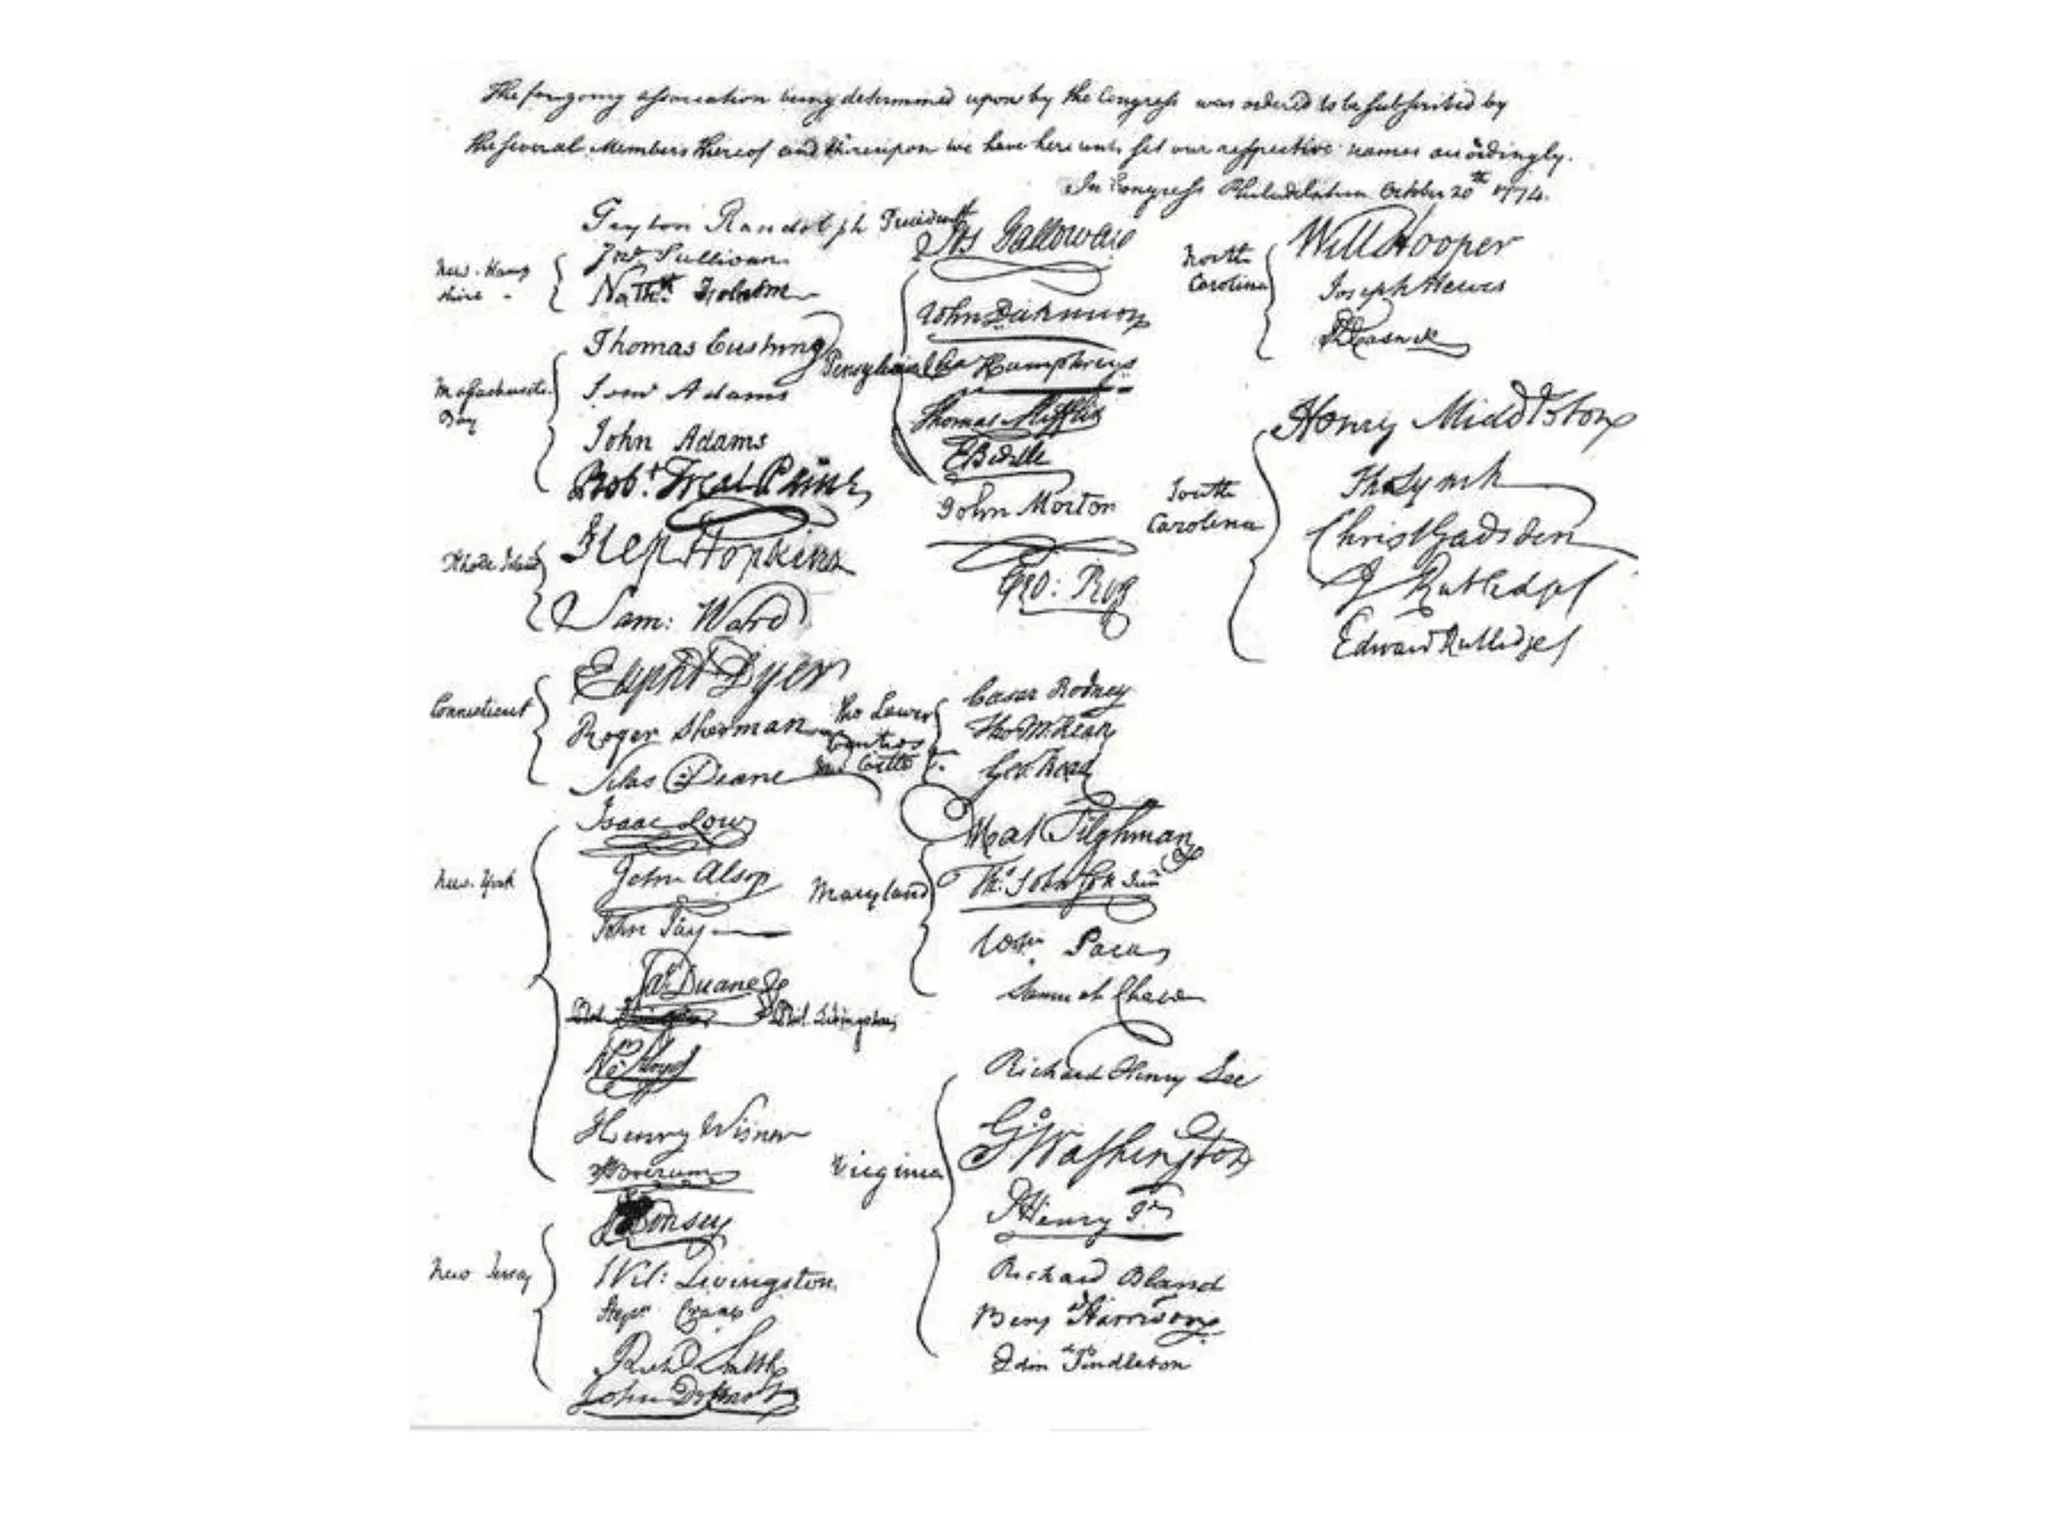 The foregoing association being determined upon by the Congress was ordered to be subscribed by
the several Members thereof and thereupon we have hereunto set our respective names accordingly.
In Congress Philadelphia October 20th 1774.
Peyton Randolph President
New-Hamp
shire -
Jno. Sullivan
Nathl. Folsom
Massachusetts
Bay
Thomas Cushing
Saml Adams
John Adams
Robt. Treat Paine
Rhode Island
Step Hopkins
Sam: Ward
Connecticut
Elipht Dyer
Roger Sherman
Silas Deane
New-York
Isaac Low
John Alsop
John Jay
Jas. Duane
Phil. Livingston
Wm. Floyd
Henry Wisner
S: Boerum
New Jersey
J. Kinsey
Wil: Livingston
Stepn Crane
Richd Smith
John De Hart
Jos Galloway
Pensylvania
John Dickinson
Cha Humphreys
Thomas Mifflin
E Biddle
John Morton
Geo: Ross
The Lower
Counties
New Castle
Caesar Rodney
Tho M:Kean
Geo: Read
Maryland
Mat Tilghman
Ths. Johnson Junr
Wm. Paca
Samuel Chase
Virginia
Richard Henry Lee
Go Washington
P Henry Jr
Richard Bland
Benj Harrison
Edm Pendleton
North
Carolina
Will Hooper
Joseph Hewes
R Caswell
South
Carolina
Henry Middleton
Tho Lynch
Christ Gadsden
J Rutledge
Edward Rutledge